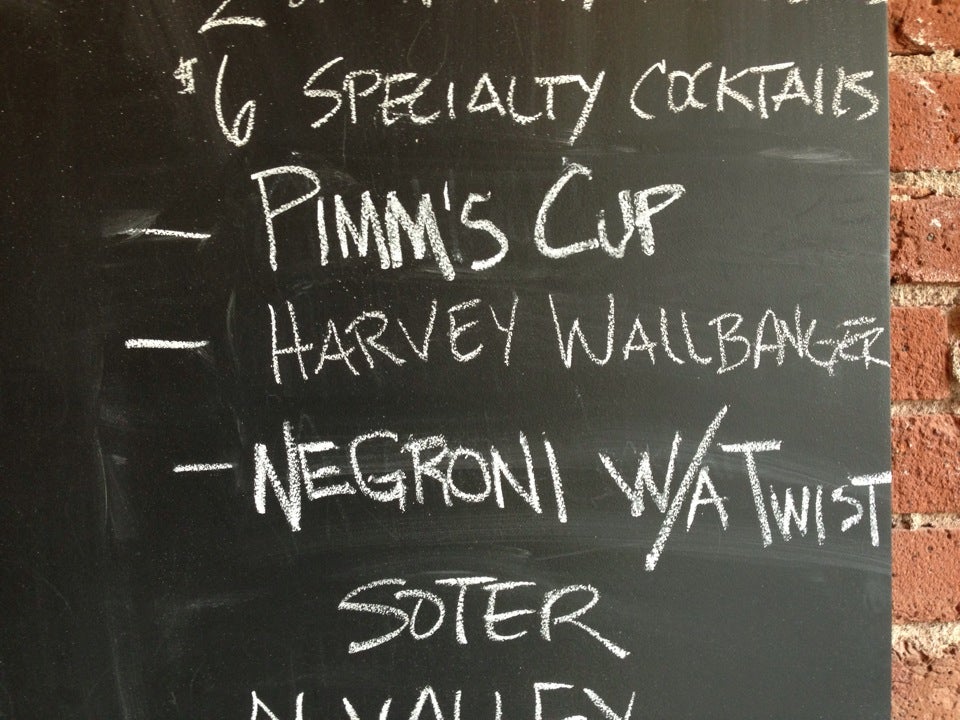 $6 SPECIALTY COCKTAILS
- PIMM'S CUP
- HARVEY WALLBANGER
- NEGRONI W/A TWIST
SOTER
N. VALLEY